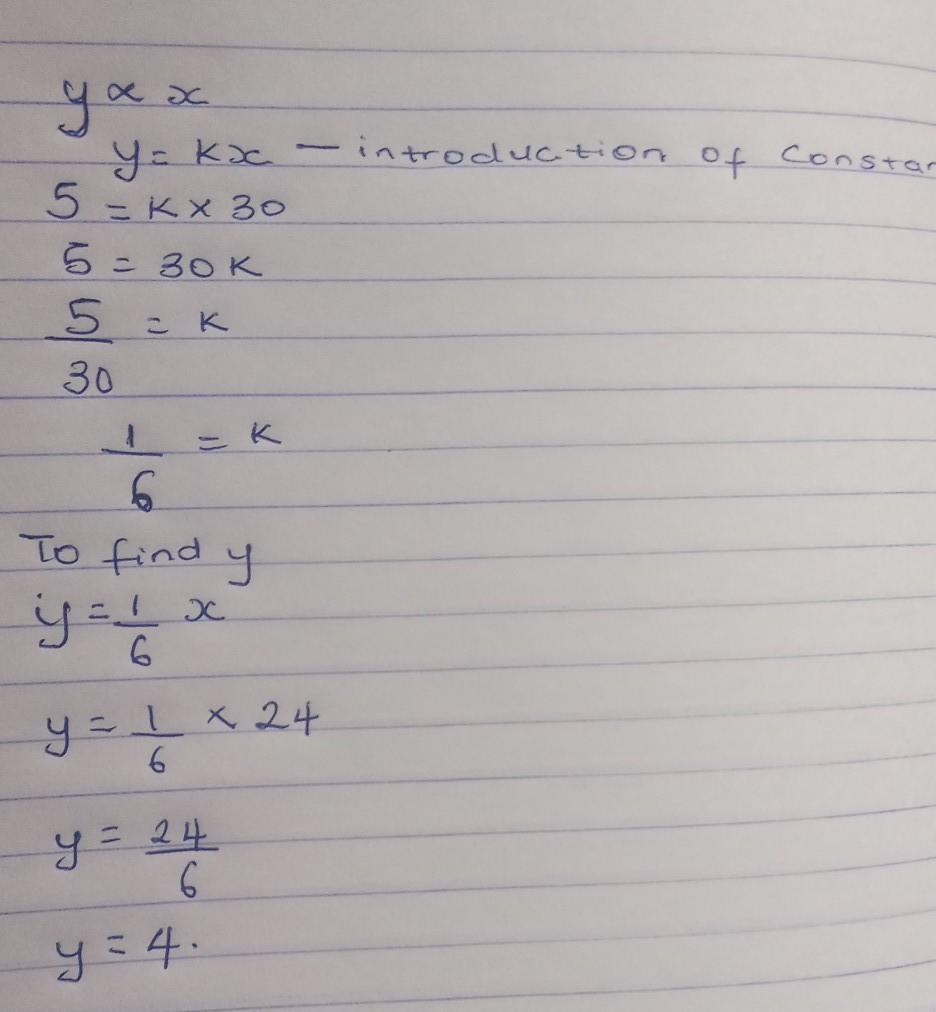 y ∝ x
y = Kx — introduction of Constan
5 = K × 30
5 = 30K
5/30 = K
1/6 = K
To find y
y = 1/6 x
y = 1/6 × 24
y = 24/6
y = 4.